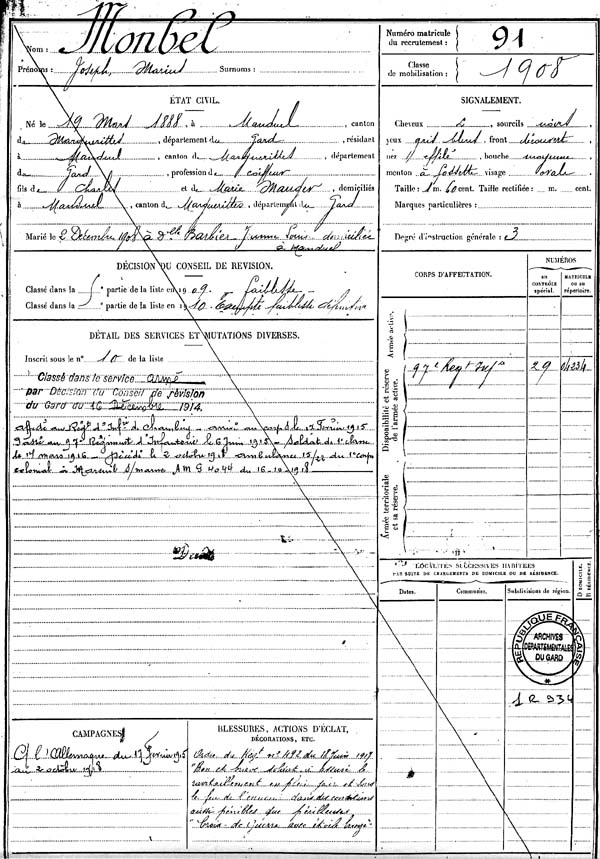 Nom : Monbel
Prénoms : Joseph, Marius Surnoms :
Numéro matricule du recrutement : 91
Classe de mobilisation : 1908
ÉTAT CIVIL.
Né le 19 Mars 1888, à Manduel, canton
de Marguerittes, département du Gard, résidant
à Manduel, canton de Marguerittes, département
du Gard, profession de coiffeur
fils de Charles et de Marie Mauger, domiciliés
à Manduel, canton de Marguerittes, département du Gard
Marié le 2 Décembre 1908 à Dlle Barbier domiciliée
à Manduel
SIGNALEMENT.
Cheveux sourcils noirs
yeux gris bleus, front découvert
nez effilé, bouche moyenne
menton à fossette visage ovale.
Taille : 1 m. 60 cent. Taille rectifiée : m. cent.
Marques particulières :
Degré d'instruction générale : 3
DÉCISION DU CONSEIL DE REVISION.
Classé dans la partie de la liste en 1909. faiblesse
Classé dans la partie de la liste en 1910. Exempté faiblesse définitive
DÉTAIL DES SERVICES ET MUTATIONS DIVERSES.
Inscrit sous le n° 10 de la liste
Classé dans le service armé
par Décision du Conseil de révision
du Gard du 16 Décembre 1914.
affecté au Régt d'Infie de Chambéry - arrivé au corps le 17 Février 1915
Passé au 97e Régiment d'Infanterie le 6 Juin 1915 - Soldat de 1e classe
le 17 mars 1916 - Décédé le 2 octobre 1918 ambulance 15/22 du 1er corps
colonial à Mareuil s/marne A M G 4044 du 16-10-1918
CORPS D'AFFECTATION.
NUMÉROS
AU CONTRÔLE spécial.
MATRICULE OU AU répertoire.
Armée active.
Disponibilité et réserve de l'armée active.
97e Régt Infie 29 04234
Armée territoriale et sa réserve.
LOCALITÉS SUCCESSIVES HABITÉES
PAR SUITE DE CHANGEMENTS DE DOMICILE OU DE RÉSIDENCE.
Dates. Communes. Subdivisions de région. D DOMICILE. R RÉSIDENCE.
RÉPUBLIQUE FRANÇAISE
ARCHIVES
DÉPARTEMENTALES
DU GARD
1 R 934
CAMPAGNES
C. l'Allemagne du 17 Février 1915
au 2 octobre 1918
BLESSURES, ACTIONS D'ÉCLAT,
DÉCORATIONS, ETC.
Ordre du Régt n° 492 du 18 Juin 1917
"Bon et brave soldat a assuré le
ravitaillement en plein jour et sous
le feu de l'ennemi dans des conditions
aussi pénibles que périlleuses"
"Croix de Guerre avec étoile bronze"